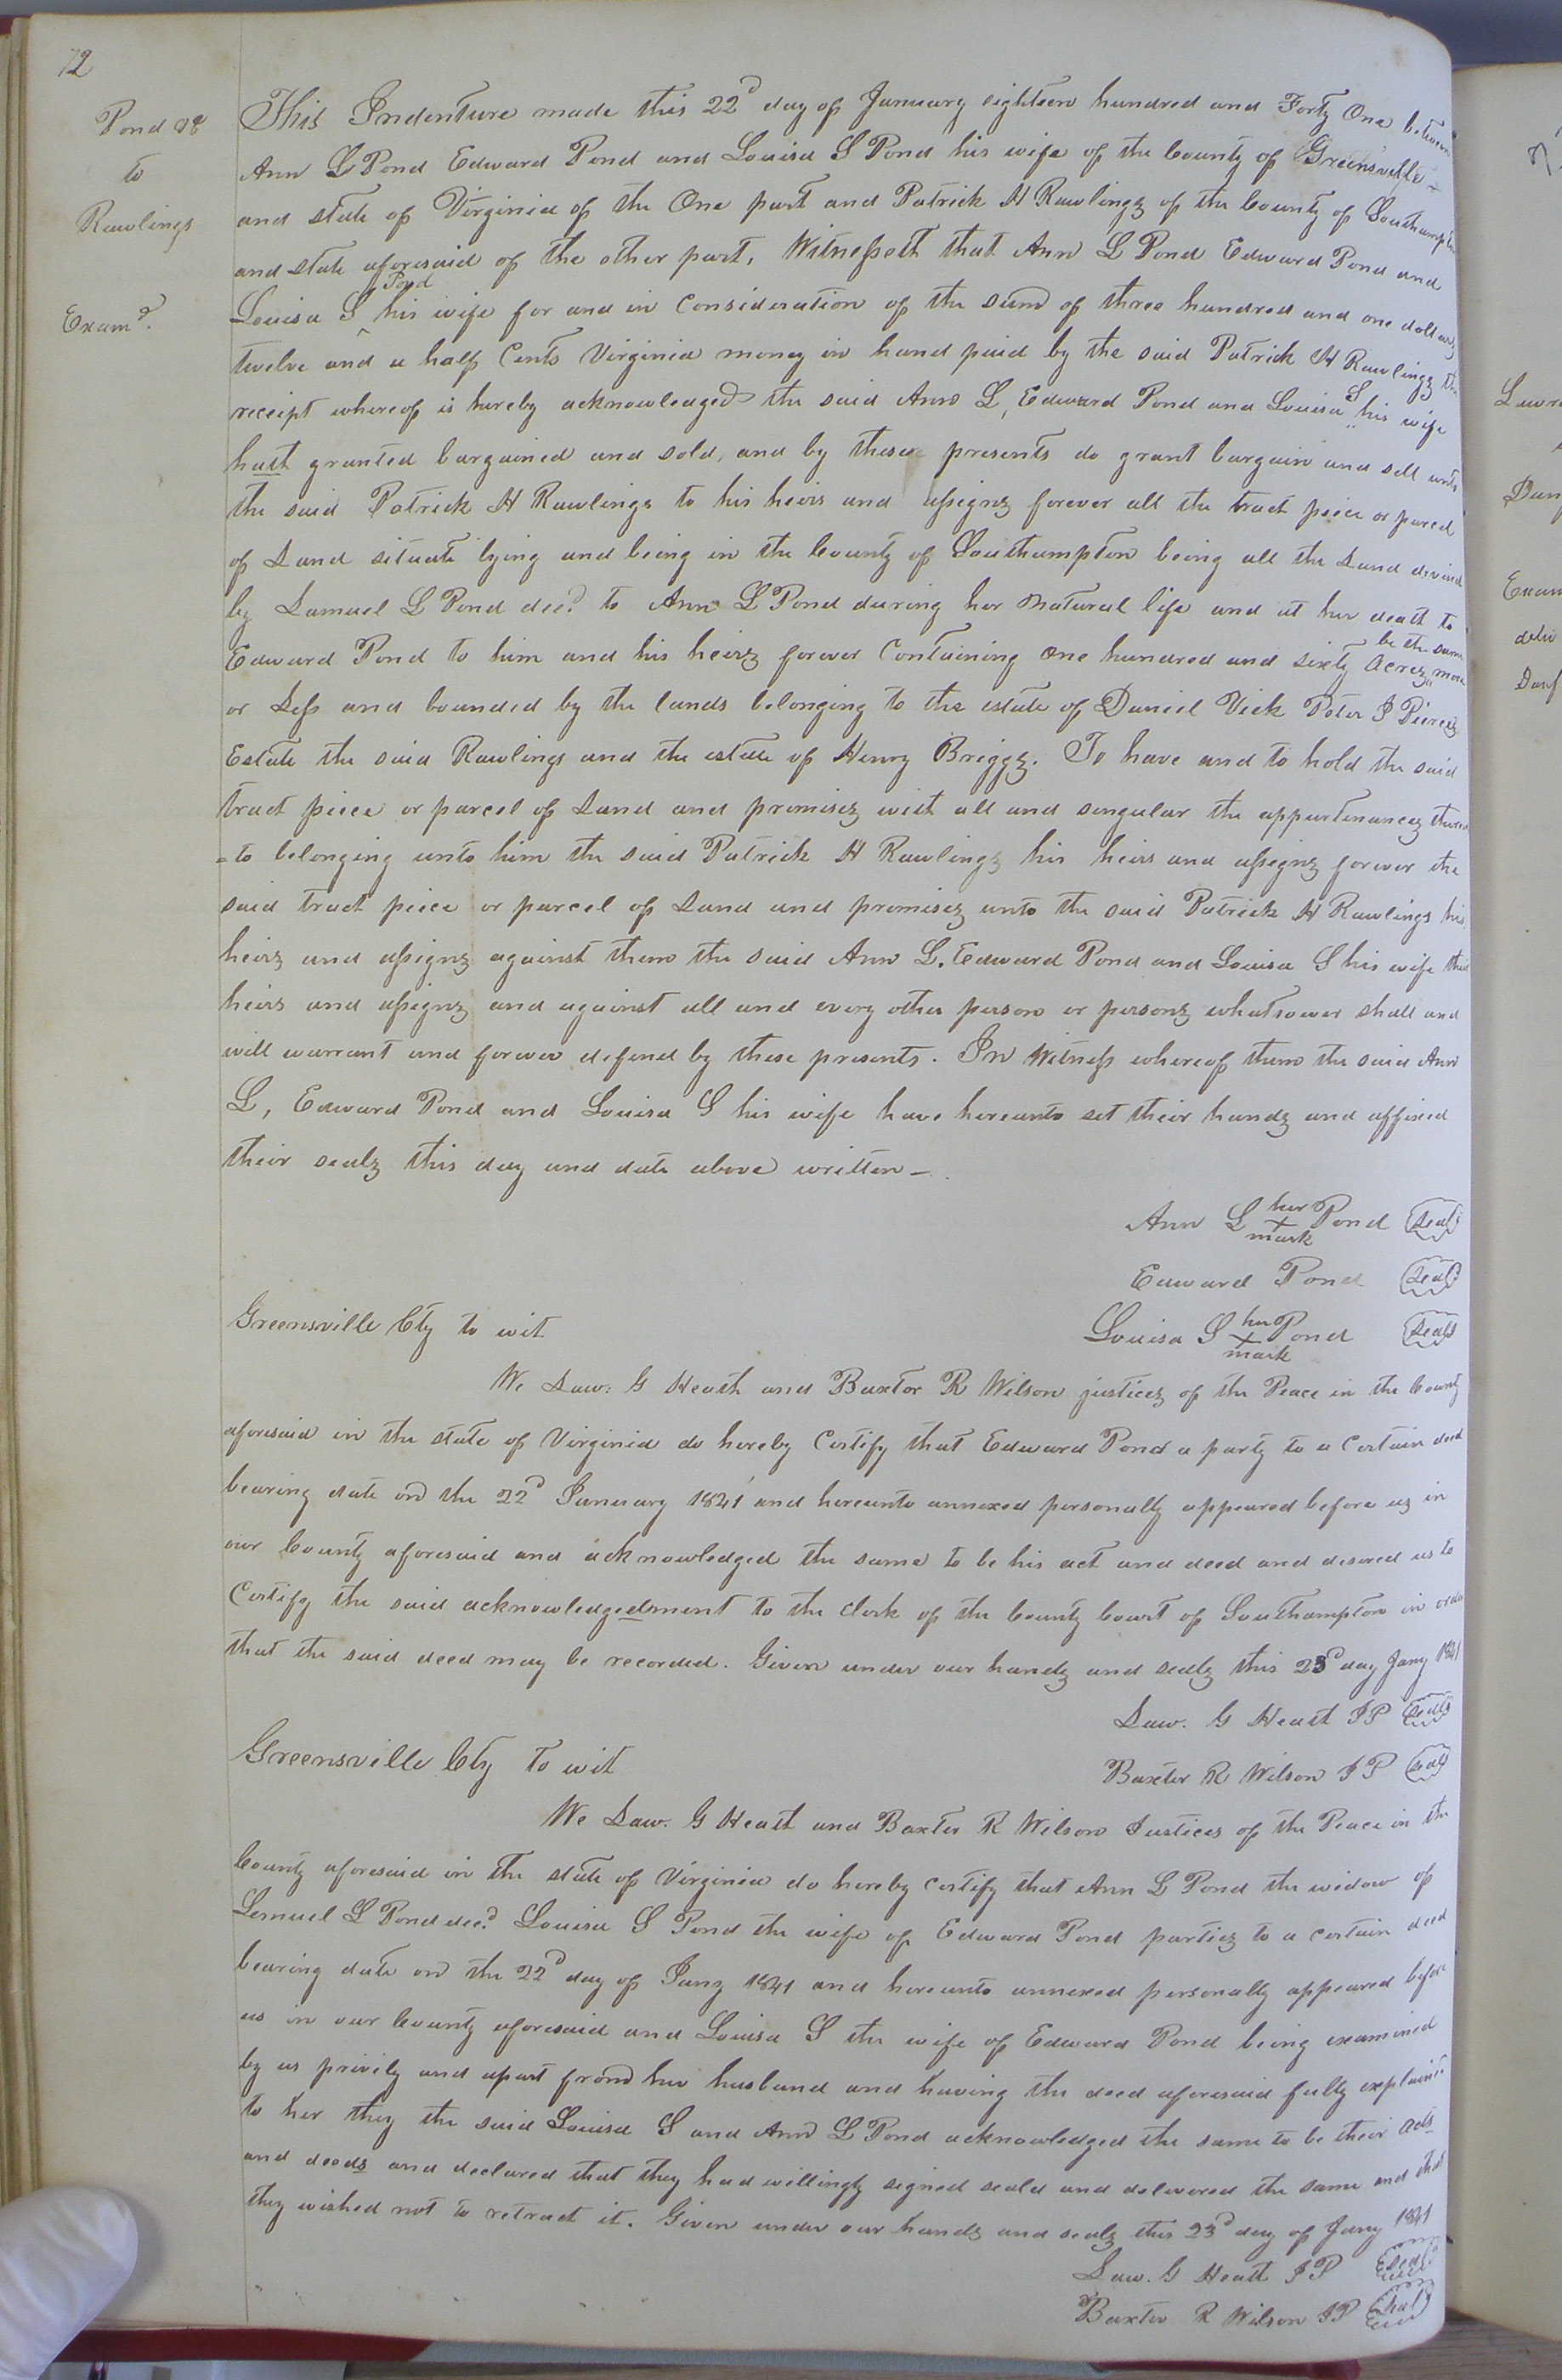 72
Pond &c
to
Rawlings
Examd.
This Indenture made this 22d day of January eighteen hundred and Forty One between
Ann L Pond Edward Pond and Louisa S Pond his wife of the County of Greensville
and state of Virginia of the One part and Patrick H Rawlings of the County of Southampton
and state aforesaid of the other part, Witnesseth that Ann L Pond Edward Pond and
Louisa S Pond his wife for and in Consideration of the sum of three hundred and one dollars
twelve and a half Cents Virginia money in hand paid by the said Patrick H Rawlings the
receipt whereof is hereby acknowledged the said Ann L, Edward Pond and Louisa S his wife
hast granted bargained and sold, and by these presents do grant bargain and sell unto
the said Patrick H Rawlings to his heirs and assigns forever all the tract peice or parcel
of Land situate lying and being in the County of Southampton being all the Land devised
by Lamuel L Pond decd. to Ann L Pond during her natural life and at her death to
Edward Pond to him and his heirs forever Containing One hundred and sixty Acres be the same more
or Less and bounded by the lands belonging to the estate of Daniel Vick Peter J Pierces
Estate the said Rawlings and the estate of Henry Briggs. To have and to hold the said
tract peice or parcel of Land and premises with all and singular the appurtenances there
=to belonging unto him the said Patrick H Rawlings his heirs and assigns forever the
said tract peice or parcel of Land and premises unto the said Patrick H Rawlings his
heirs and assigns against them the said Ann L. Edward Pond and Louisa S his wife their
heirs and assigns and against all and every other person or persons whatsoever shall and
will warrant and forever defend by these presents. In Witness whereof them the said Ann
L, Edward Pond and Louisa S his wife have hereunto set their hands and affixed
their seals this day and date above written —
Ann L her + mark Pond (Seal)
Edward Pond (Seal)
Louisa S her + mark Pond (Seal)
Greensville Cty to wit
We Law: G Heath and Baxter R Wilson justices of the Peace in the County
aforesaid in the state of Virginia do hereby Certify that Edward Pond a party to a Certain deed
bearing date on the 22d January 1841 and hereunto annexed personally appeared before us in
our County aforesaid and acknowledged the same to be his act and deed and desired us to
Certify the said acknowledgedment to the Clerk of the County Court of Southampton in order
that the said deed may be recorded. Given under our hands and seals this 23d day Jany 1841
Law. G Heath JP (Seal)
Baxter R Wilson JP (Seal)
Greensville Cty To wit
We Law. G Heath and Baxter R Wilson Justices of the Peace in the
County aforesaid in the state of Virginia do hereby certify that Ann L Pond the widow of
Lemuel L Pond decd. Louisa S Pond the wife of Edward Pond parties to a certain deed
bearing date on the 22d day of Jany 1841 and hereunto annexed personally appeared before
us in our County aforesaid and Louisa S the wife of Edward Pond being examined
by us privily and apart from her husband and having the deed aforesaid fully explained
to her they the said Louisa S and Ann L Pond acknowledged the same to be their acts
and deeds and declared that they had willingly signed seald and delivered the same and that
they wished not to retract it. Given under our hands and seals this 23d day of Jany 1841
Law. G Heath JP (Seal)
Baxter R Wilson JP (Seal)